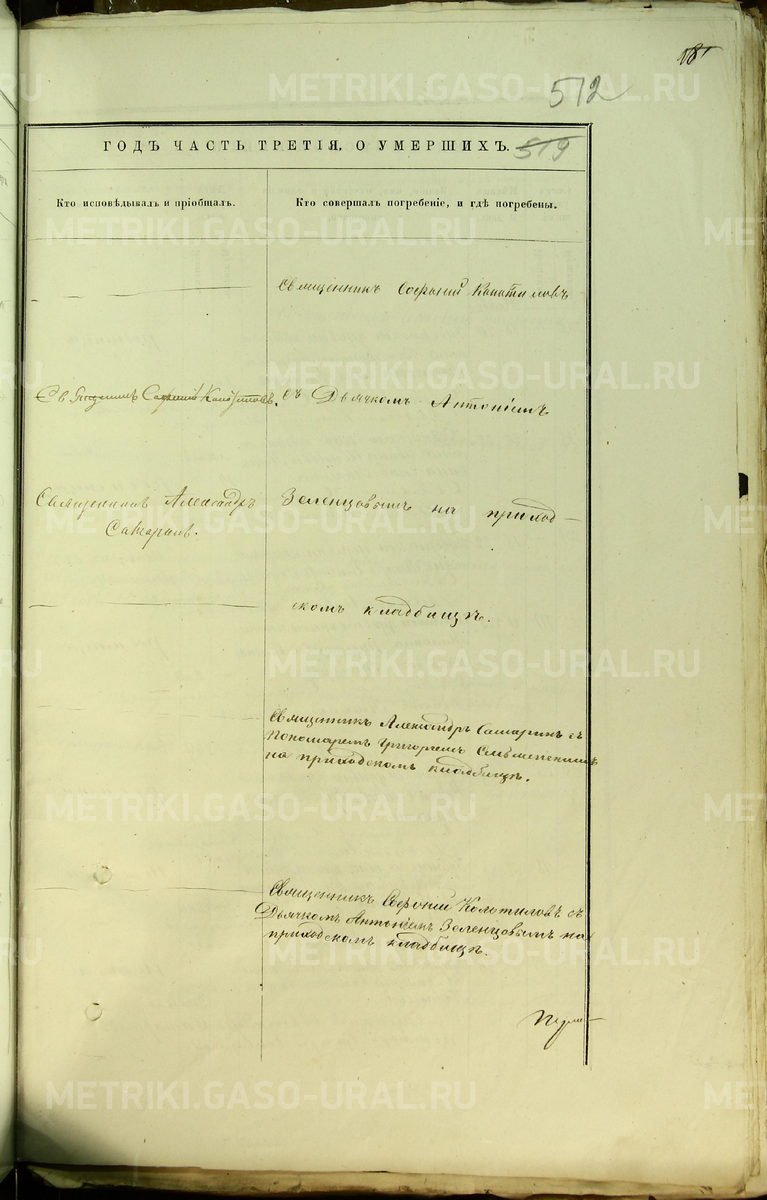 18
512
ГОДЪ ЧАСТЬ ТРЕТІЯ, О УМЕРШИХЪ.
519
Кто исповѣдывалъ и пріобщалъ.
Кто совершалъ погребеніе, и гдѣ погребены.
Священникъ Софроній
Священникъ Софроній
съ Дьячкомъ Антоніемъ
Священникъ Александръ
Самаринъ.
Зеленцовымъ на приход-
скомъ кладбищѣ.
Священникъ Александръ Самаринъ съ
Пономаремъ Григоріемъ
на приходскомъ кладбищѣ.
Священникъ Софроній Колотиловъ съ
Дьячкомъ Антоніемъ Зеленцовымъ на
приходскомъ кладбищѣ.
METRIKI.GASO-URAL.RU